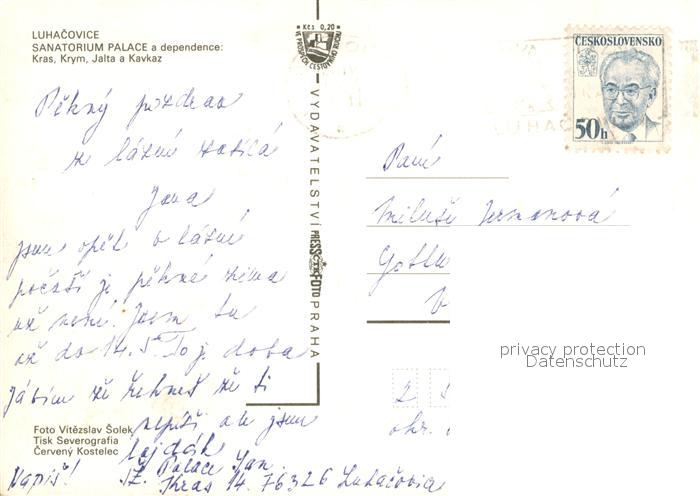 LUHAČOVICE
SANATORIUM PALACE a dependence:
Kras, Krym, Jalta a Kavkaz
Kčs 0,20
VE PROSPĚCH CESTOVNÍHO RUCHU
ČESKOSLOVENSKO
50h
LUHAČ
Pěkný pozdrav
ze lázní zasílá
Jana
Jsem opět v lázní
počasí je pěkné zima
už není. Jsem tu
až do 14.5. To je doba
že ti
nepíši ale jsem
lajdák
Napiš!
Palace Jan.
Kras 14. 76326 Luhačovice
Paní
Miluše Hermanová
Gottw
VYDAVATELSTVÍ PRESSFOTO PRAHA
2
okr.
privacy protection
Datenschutz
Foto Vítězslav Šolek
Tisk Severografia
Červený Kostelec